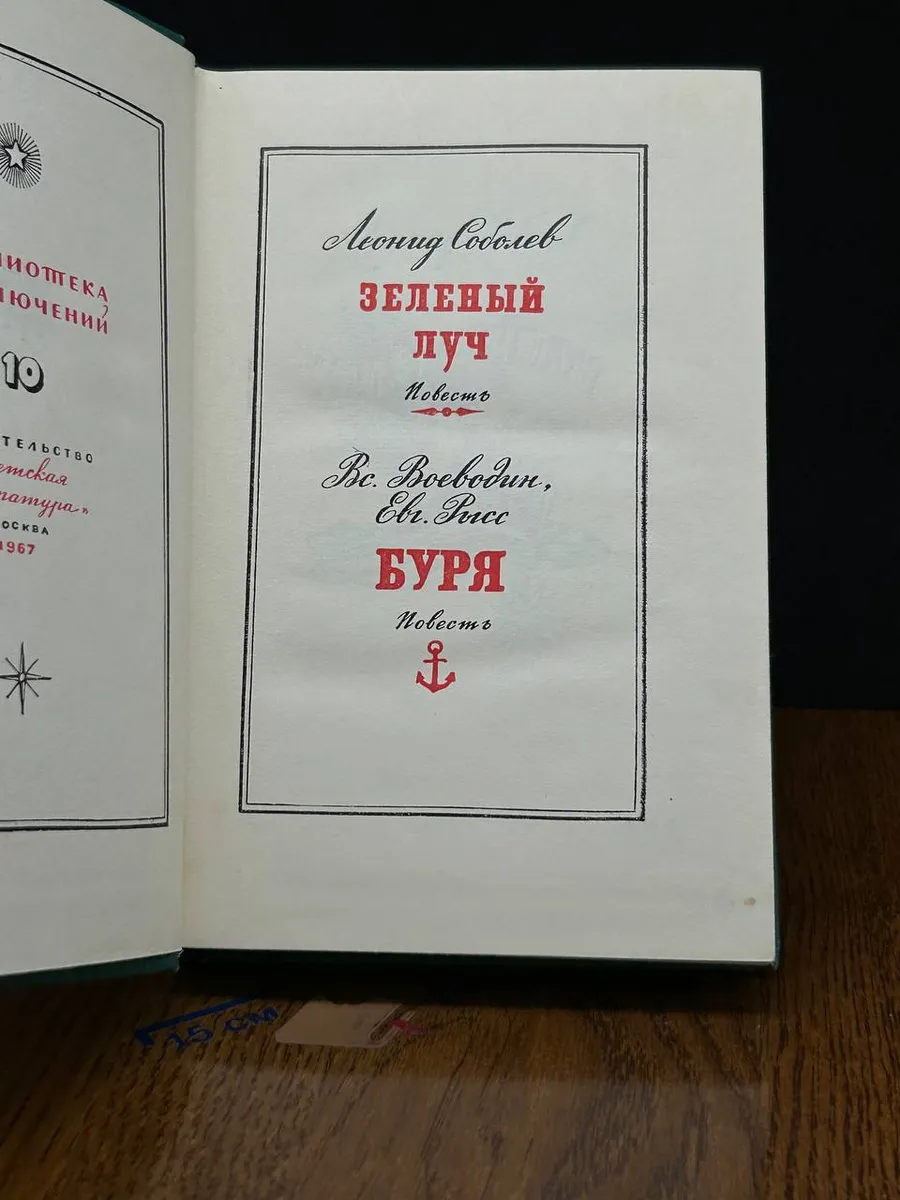 ИОТЕКА
ЮЧЕНИЙ
10
ТЕЛЬСТВО
етская
ратура"
ОСКВА
1967
Леонид Соболев
ЗЕЛЕНЫЙ
ЛУЧ
Повесть
Вс. Воеводин,
Евг. Рысс
БУРЯ
Повесть
15 см